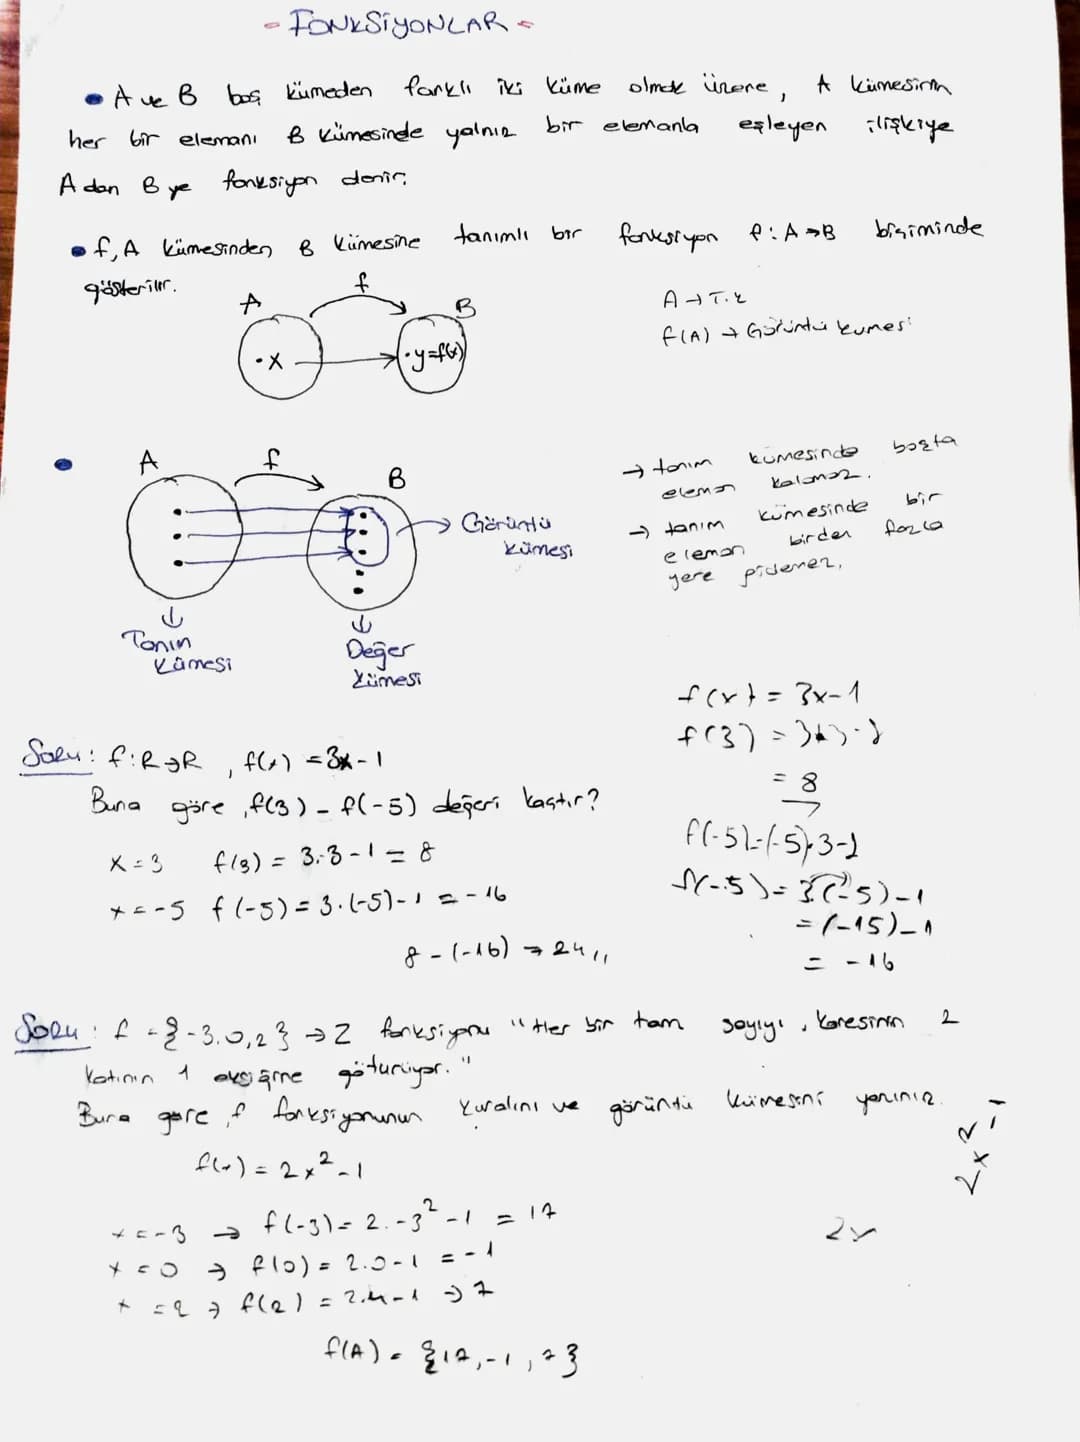 - FONKSİYONLAR -
• A ve B boş kümeden farklı iki küme olmak üzere, A kümesinin
her bir elemanı B kümesinde yalnız bir elemanla eşleyen ilişkiye
A dan B ye fonksiyon denir.
• f, A kümesinden B kümesine tanımlı bir fonksiyon f: A→B biçiminde
gösterilir.
A f B
• x → • y=f(x)
A → T.K
f(A) → Görüntü kümesi
A f B
Görüntü
kümesi
Tanım
kümesi
Değer
kümesi
→ tanım kümesinde boşta
eleman kalamaz.
→ tanım kümesinde bir
eleman birden fazla
yere gidemez.
Soru: f:R→R, f(x) = 3x-1
Buna göre, f(3) - f(-5) değeri kaçtır?
x = 3 f(3) = 3.3-1 = 8
x = -5 f(-5) = 3.(-5)-1 = -16
8 - (-16) → 24,,
f(x) = 3x-1
f(3) = 3.3-1
= 8
f(-5)=(-5).3-1
f(-5) = 3.(-5)-1
= (-15)-1
= -16
Soru: f = {-3,0,2} → Z fonksiyonu "Her bir tam sayıyı, karesinin 2
katının 1 eksiğine götürüyor."
Buna göre, f fonksiyonunun kuralını ve görüntü kümesini yazınız.
f(x) = 2x²-1
x = -3 → f(-3) = 2.-3²-1 = 17
x = 0 → f(0) = 2.0-1 = -1
x = 2 → f(2) = 2.4-1 → 7
f(A) = {17,-1,7}
2x²-1
2x